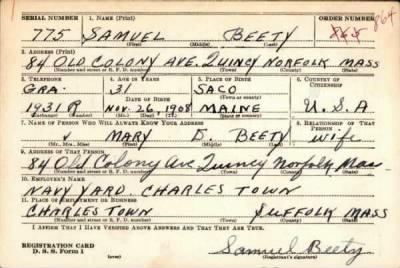 SERIAL NUMBER 1. NAME (Print) ORDER NUMBER
775 SAMUEL BEETY 865 864
(First) (Middle) (Last)
2. ADDRESS (Print)
84 OLD COLONY AVE. QUINCY NORFOLK MASS
(Number and street or R. F. D. number) (Town) (County) (State)
3. TELEPHONE 4. AGE IN YEARS 5. PLACE OF BIRTH 6. COUNTRY OF CITIZENSHIP
GRA. 31 SACO
(Town or county)
DATE OF BIRTH
1931 R NOV. 26, 1908 MAINE U.S.A
(Exchange) (No.) (Mo.) (Day) (Yr.) (State or country)
7. NAME OF PERSON WHO WILL ALWAYS KNOW YOUR ADDRESS 8. RELATIONSHIP OF THAT PERSON
MARY D. BEETY wife
(Mr., Mrs., Miss) (First) (Middle) (Last)
9. ADDRESS OF THAT PERSON
84 Old Colony Ave Quincy Norfolk Mass
(Number and street or R. F. D. number) (Town) (County) (State)
10. EMPLOYER'S NAME
NAVY YARD. CHARLES TOWN
11. PLACE OF EMPLOYMENT OR BUSINESS
CHARLES TOWN SUFFOLK MASS
(Number and street or R. F. D. number) (Town) (County) (State)
I AFFIRM THAT I HAVE VERIFIED ABOVE ANSWERS AND THAT THEY ARE TRUE.
REGISTRATION CARD
D. S. S. Form 1
Samuel Beety
(Registrant's signature)